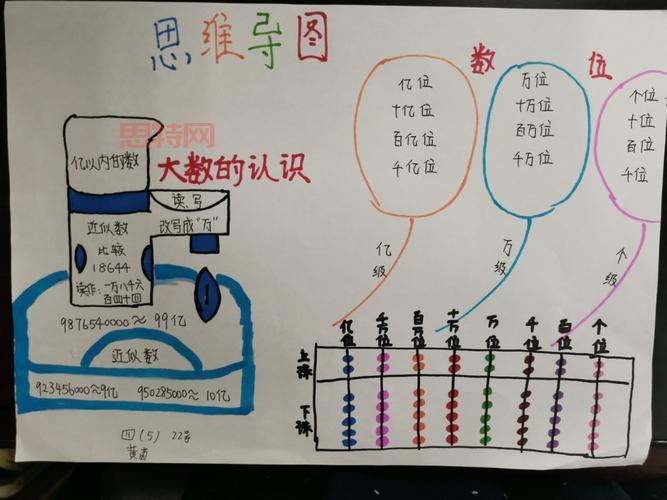 思维导图
思特网
大数的认识
亿以内的数
读、写
改写成“万”
近似数
比较
18644
读作:一万八千六
百四十四
9876540000≈99亿
近似数
923456000≈9亿
950285000≈10亿
四(5) 22号
数位
亿位
十亿位
百亿位
千亿位
亿级
万位
十万位
百万位
千万位
万级
个位
十位
百位
千位
个级
亿位 千万位 百万位 十万位 万位 千位 百位 个位
上珠
下珠